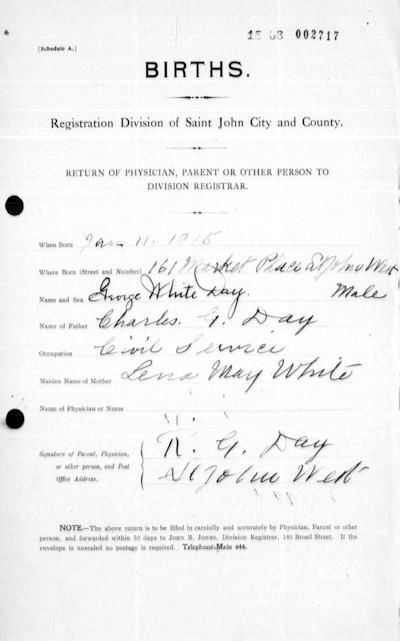 15 03 002717
[Schedule A.]
BIRTHS.
Registration Division of Saint John City and County.
RETURN OF PHYSICIAN, PARENT OR OTHER PERSON TO
DIVISION REGISTRAR.
When Born Jan 11. 1915
Where Born (Street and Number) 161 Market Place St John West
Name and Sex George White Day. Male
Name of Father Charles. G. Day
Occupation Civil Service
Maiden Name of Mother Lena May White
Name of Physician or Nurse
Signature of Parent, Physician, R. G. Day
or other person, and Post St John West
Office Address.
NOTE.—The above return is to be filled in carefully and accurately by Physician, Parent or other
person, and forwarded within 30 days to JOHN B. JONES, Division Registrar, 140 Broad Street. If the
envelope is unsealed no postage is required. Telephone Main 644.